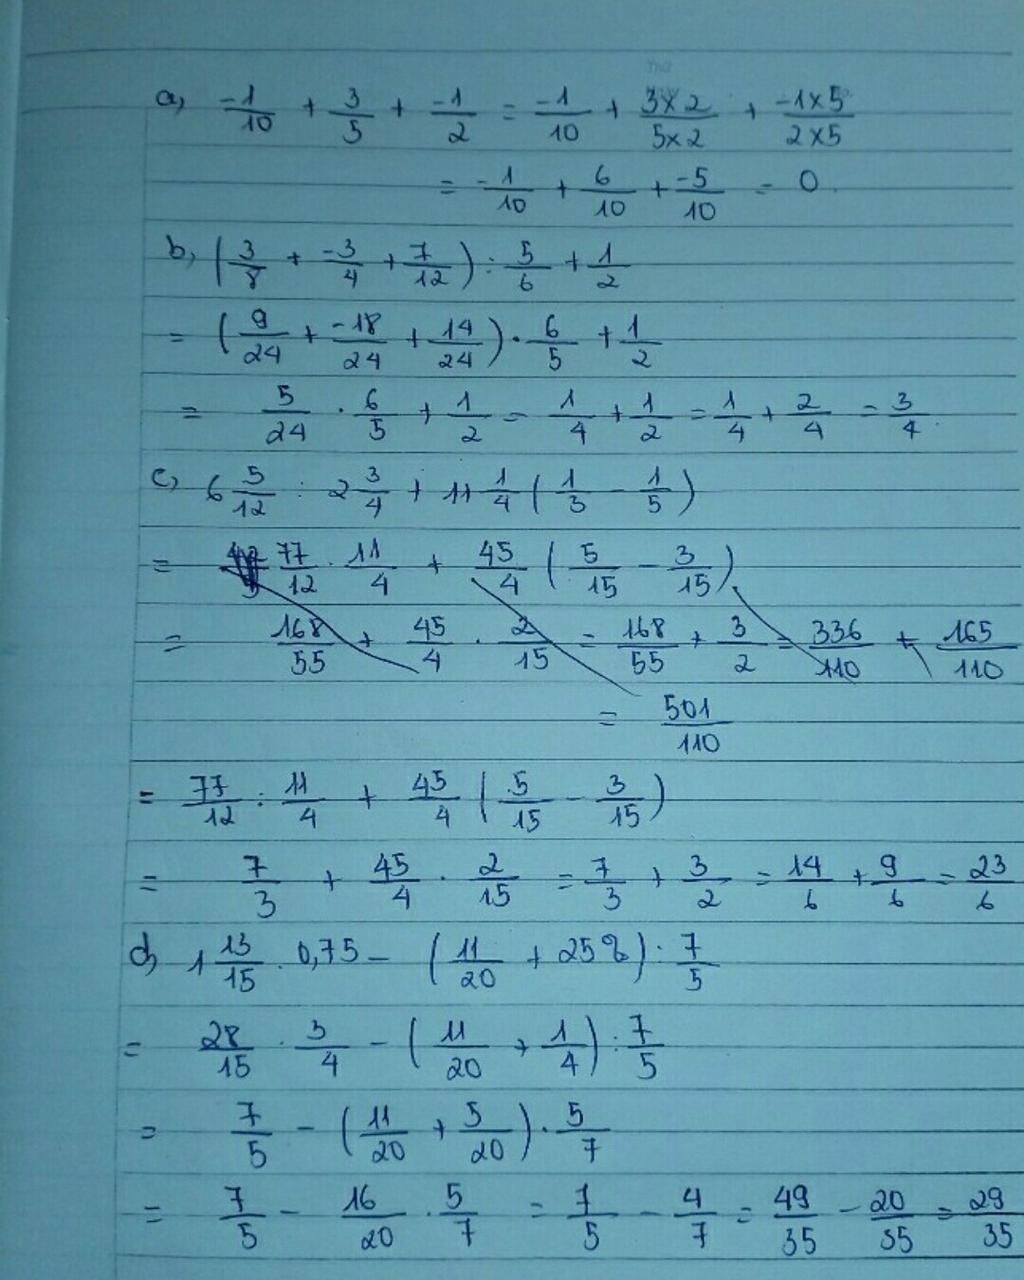 a, -1/10 + 3/5 + -1/2 = -1/10 + 3×2/5×2 + -1×5/2×5
= -1/10 + 6/10 + -5/10 = 0.
b, (3/8 + -3/4 + 7/12) : 5/6 + 1/2
= (9/24 + -18/24 + 14/24) . 6/5 + 1/2
= 5/24 . 6/5 + 1/2 = 1/4 + 1/2 = 1/4 + 2/4 = 3/4.
c, 6 5/12 : 2 3/4 + 11 1/4 (1/3 - 1/5)
= 77/12 . 11/4 + 45/4 (5/15 - 3/15)
= 168/55 + 45/4 . 2/15 = 168/55 + 3/2 = 336/110 + 165/110
= 501/110
= 77/12 : 11/4 + 45/4 (5/15 - 3/15)
= 7/3 + 45/4 . 2/15 = 7/3 + 3/2 = 14/6 + 9/6 = 23/6
d, 1 13/15 . 0,75 - (11/20 + 25%) : 7/5
= 28/15 . 3/4 - (11/20 + 1/4) : 7/5
= 7/5 - (11/20 + 5/20) . 5/7
= 7/5 - 16/20 . 5/7 = 7/5 - 4/7 = 49/35 - 20/35 = 29/35